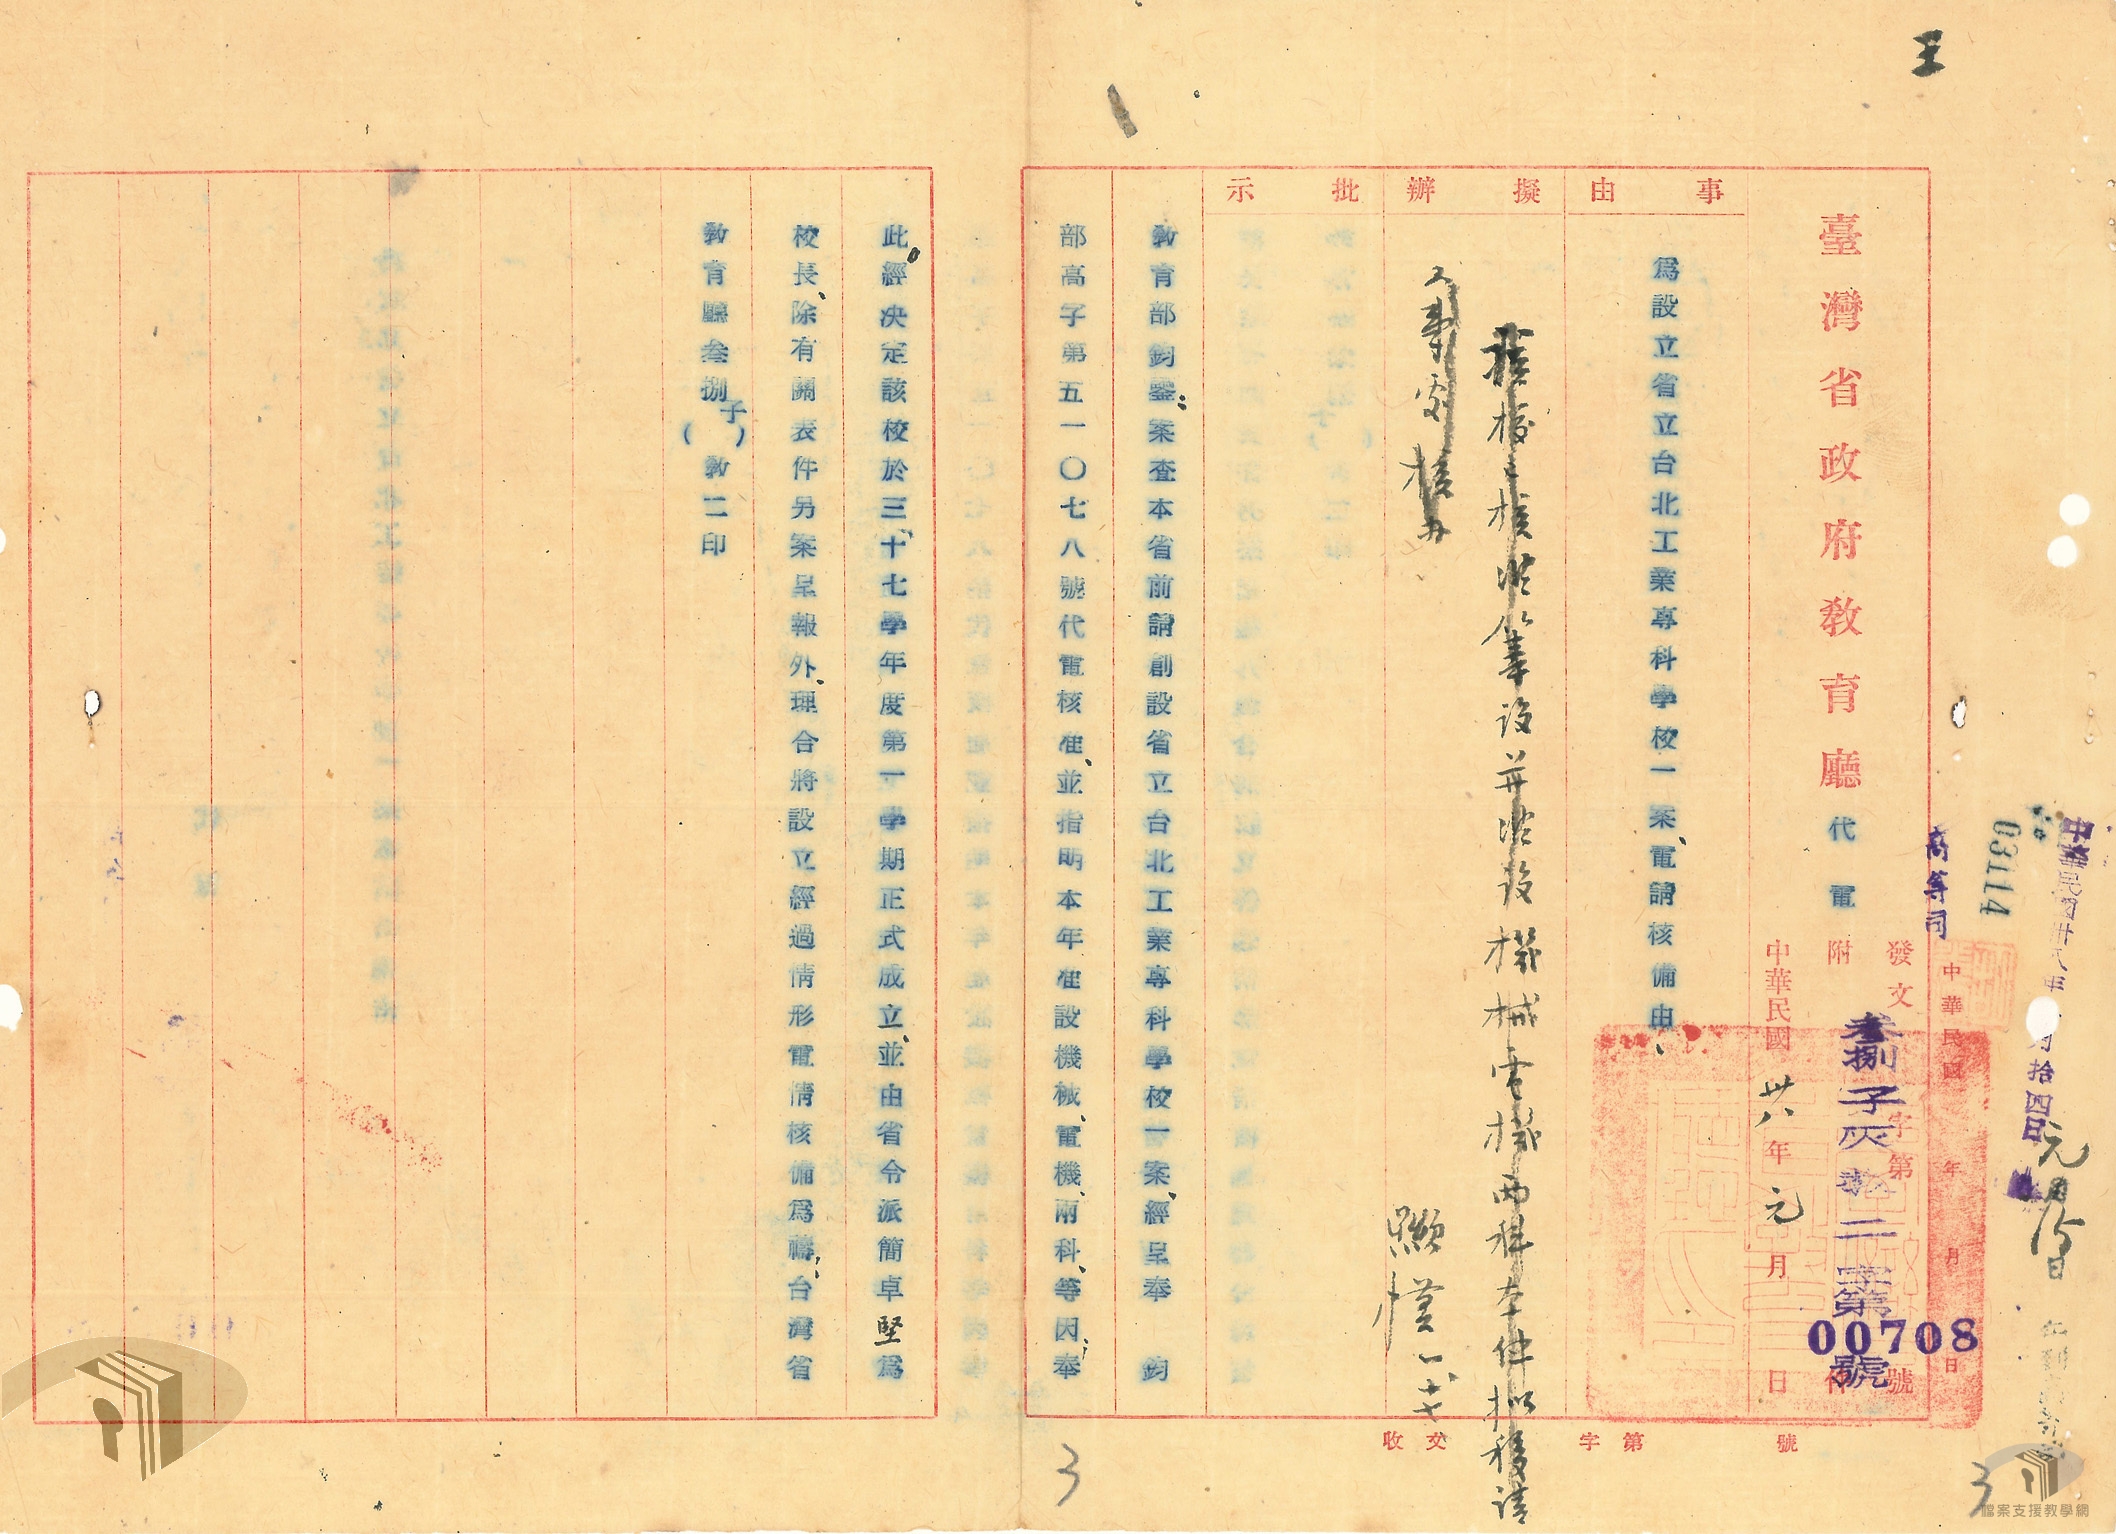 臺灣省政府教育廳代電
事由
擬辦
批示
為設立省立台北工業專科學校一案、電請核備由、
高等司
03114
發文 字第 號
叁捌子灰教二字第
00708
號
附
中華民國卅八年元月 日
中華民國 年 月 日
元月15日
該校已核准籌設并准設機械電機兩科本件擬移請
人事處核办
教育部鈞鑒：案查本省前請創設省立台北工業專科學校一案、經呈奉 鈞
部高字第五一〇七八號代電核准、並指明本年准設機械、電機、兩科、等因、奉
此、經決定該校於三十七學年度第一學期正式成立、並由省令派簡卓堅為
校長、除有關表件另案呈報外、理合將設立經過情形電請核備為禱、台灣省
教育廳叁捌（子）教二印
收文 字第 號
3
3
檔案支援教學網